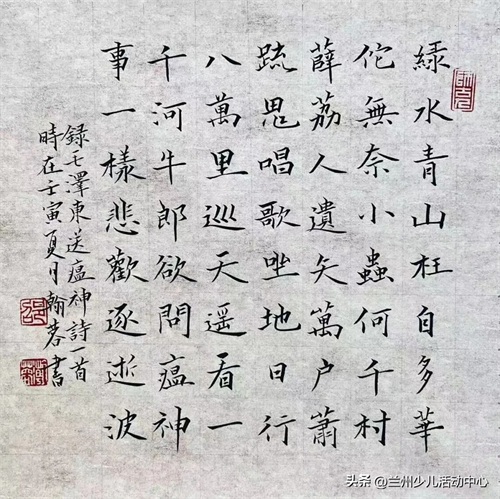 綠水青山枉自多華
佗無奈小蟲何千村
薜荔人遺矢萬户蕭
疏鬼唱歌坐地日行
八萬里巡天遥看一
千河牛郎欲問瘟神
事一樣悲歡逐逝波
録毛澤東送瘟神詩一首
時在壬寅夏月翰蓉書
头条@兰州少儿活动中心